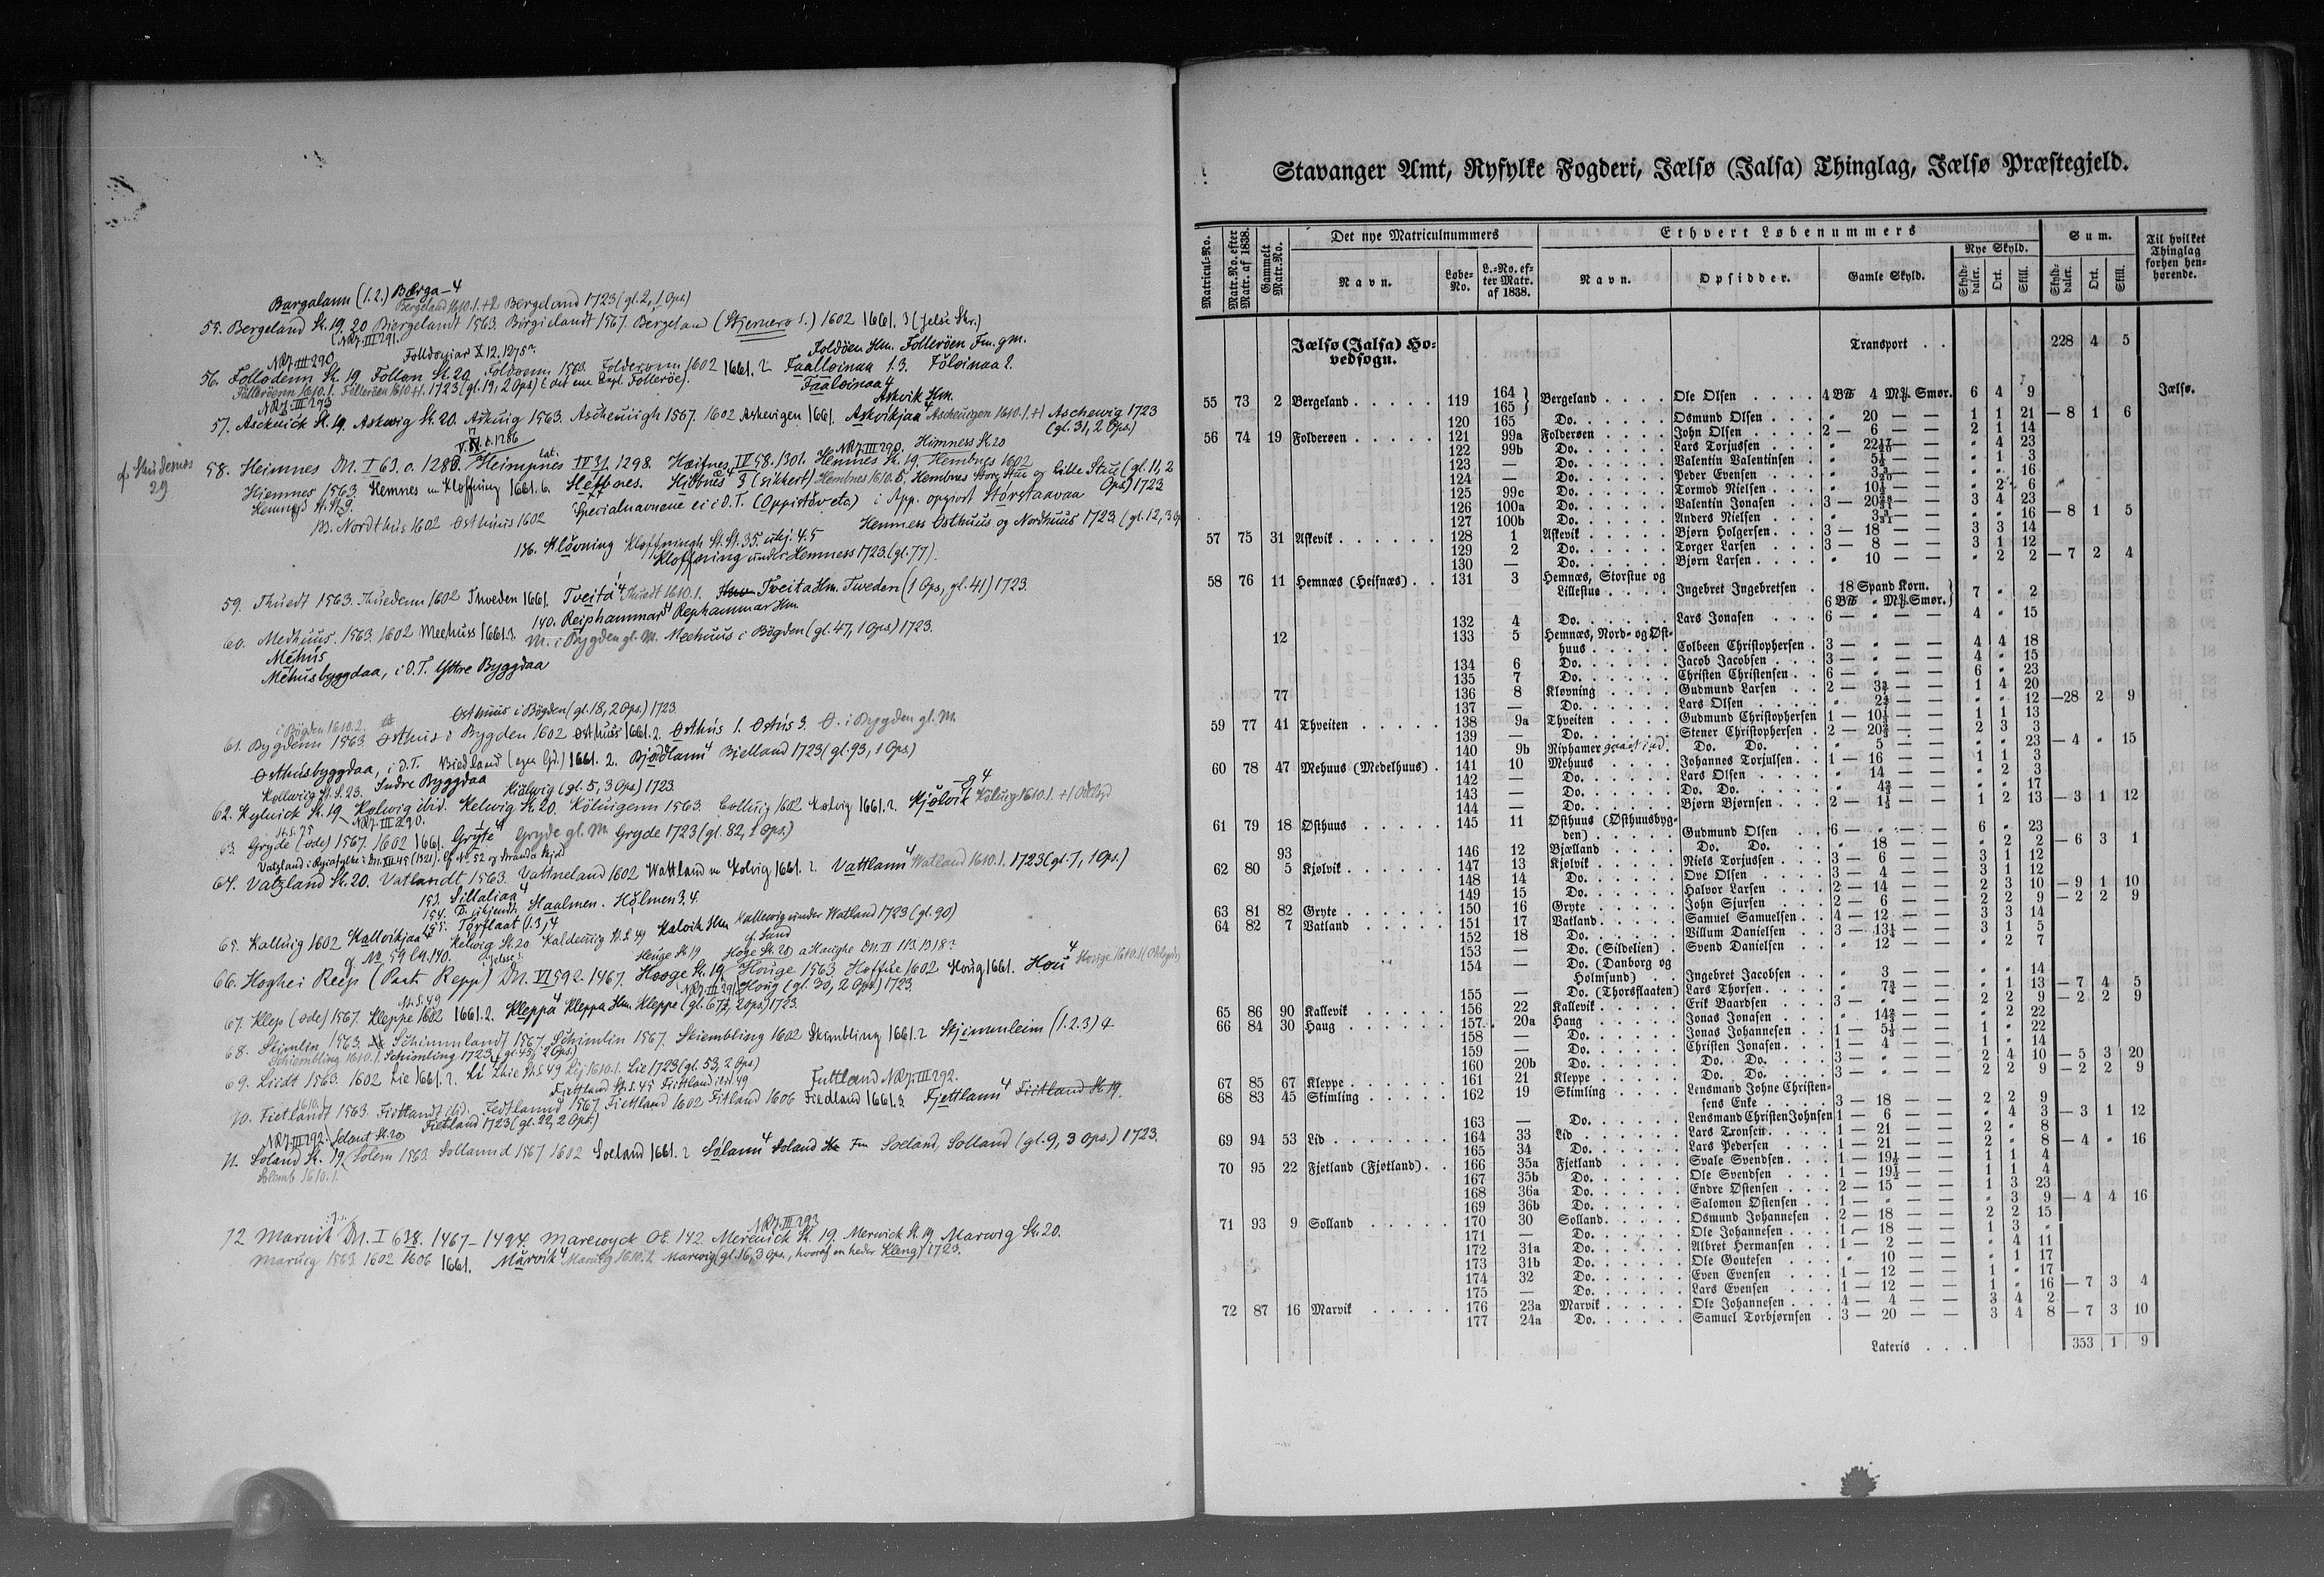 Bargalann (1.2.) Bærga-4
Bergeland 1610.1.+2 Bergeland 1723 (gl. 2, 1 Ops.)
55. Bergeland St. 19. 20 Biergelandt 1563. Birgielandt 1567. Bergeland (Stjernerø S.) 1602 1661. 3 (Jelse Skr.)
NRJ. III 291.
NRJ. III 290 Folldoyiar X 12. 1275. Foldöen Hm. Follerøen Fm. gm.
56. Follodenn St. 19. Follon St. 20. Foldoenn 1563. Folderoenn 1602 1661. 2 Faalløinaa 1.3. Föløinaa 2.
Follerönn 1610.1. Follerøen 1610 +1. 1723 (gl. 19, 2 Ops) (det ene Expl. Follerøe). Faaløinaa 4
NRJ. III 293 Askvik Hm.
57. Aschuick St. 19. Askewig St. 20. Askuig 1563. Ascheuiigh 1567. 1602 Askevigen 1661. Askvikjaa 4 Ascheuigen 1610.1.+1 Aschewig 1723
(gl. 31, 2 Ops.)
V. N. d. 1286 NRJ. III 290. Himness St. 20
cf. Skudenes 29
58. Heimnes DN. I 69. o. 1280. Heimpnes IV 31. 1298. Hæifnes IV 58. 1301. Hemnes St. 19. Hembnes 1602
Hiemnes 1563. Hemnes m Kloffning 1661. 6. Hettnes. Hittnes 3 (sikkert) Hembnes 1610.6, Hembnes Storg Stue og Lille Stue (gl. 11, 2
Ops) 1723
Specialnavnene ei i D.T. (Oppistöv etc.) i App. oppjort Storstaavaa
M. Nordthus 1602 Østhuus 1602 Hemness Østhuus og Nordhuus 1723. (gl. 12, 3 Op
136. Kløvning Kloffningh St. St. 35. ukj. 4. 5
Kloffning under Hemness 1723. (gl. 77).
59. Thuedt 1563. Thuedenn 1602 Thveden 1661. Tveitá 4 Thuedt 1610.1. Tveita Hm. Tweden (1 Ops, gl. 41) 1723.
140. Reiphammar 4 Rephammar Hm.
60. Medhuus. 1563. 1602 Meehuss 1661.3. M. i Bygden gl. M. Meehuus i Bögden (gl. 47, 1 Ops) 1723.
Mehús
Mehúsbyggdaa, i D.T. Yttre Byggdaa
i Bögden 1610.2. Østhuus i Bögden (gl. 18, 2 Ops.) 1723.
61. Bygdenn 1563 Østhuis i Bygden 1602 Østhuss 1661.2. Østhús 1. Østús 3. Ø. i Bygden gl. M.
Østhúsbyggdaa, i D.T. Biedland (egen Gd.) 1661. 2. Bjødlann 4 Bielland 1723 (gl. 93, 1 Ops.)
Indre Byggdaa
Kiölwig (gl. 5, 3 Ops) 1723.
62. Kyluick St. 19 Kølwig ibid. Kelwig St. 20. Köluigenn 1563. Colluig 1602 Kølvig 1661.2. Kjølvík 4 Köluig 1610.1.
NRJ. III 290.
63. Gryde (øde) 1567. 1602 1661. Grýte 4 Gryde gl. M. Gryde 1723 (gl. 82, 1 Ops.)
64. Vatzland St. 20. Vatlandt 1563. Vattneland 1602 Wattland m Kolvig 1661. 2. Vattlann 4 Watland 1610.1. 1723 (gl. 7, 1 Ops.)
153. Sillaliaa 4
154. D. ukjendt. Haalmen. Hölmen 3.4.
155. Torflaat (1.3.) 4
65. Kalluig 1602 Kallvikjaa 4 Kelwig St. 20. Kaldeuiig St. S. 49 Kalvik Hm Kallewig under Watland 1723 (gl. 90)
cf. No 59 LN. 140.
66. Hoghei Reep (Part. Repp) DN. VI 592. 1467. Hooge St. 19. Houge 1563. Hoffue 1602 Houg 1661. Hou 4
NRJ. III 291. Houg (gl. 30, 2 Ops.) 1723.
67. Klep (øde) 1567. Kleppe 1602 1661.2. Kleppa 4 Kleppa Hm. Kleppe (gl. 67, 2 Ops) 1723.
68. Skimlin 1563. Schimmlandt 1567. Schimlin 1567. Skiembling 1602 Skimbling 1661.2 Skjimenleim (1.2.3) 4
Schiembling 1610.1. Schiomling 1723 (gl. 45, 2 Ops.)
69. Liidt 1563. 1602 Lie 1661.2. Lí 4 Lie 1723 (gl. 53, 2 Ops)
Fiettland St. S. 45 Fiettland ibid. 49 Futtland NRJ. III 292.
70. Fietlandt 1563. Fiitlandt ibid. Fedtlannd 1567. Fiettland 1602 Fitland 1606 Fiedland 1661.3. Fjettlann 4 Fiitland St. 19.
NRJ. III 292. Solant St. 20 Fietland 1723 (gl. 22, 2 Ops.)
71. Soland St. 19. Solem 1563. Sollannd 1567 1602 Soeland 1661. 2 Sølann 4 Soland Fm. Soeland, Solland (gl. 9, 3 Ops.) 1723.
Solemb 1610.1.
NRJ. III 293
72 Marvik DN. I 638. 1467-1494. Marewyck OE. 142 Mereuick St. 19. Merwick St. 19. Marwig St. 20.
Maruig 1563. 1602 1606 1661. Márvik 4 Maruig 1610.2. Marwig (gl. 16, 3 Ops., hvoraf en heder Kleng) 1723.
Stavanger Amt, Ryfylke Fogderi, Jælsø (Jalsa) Thinglag, Jælsø Præstegjeld.
Matricul-No. Matr.No. efter Matr. af 1838. Gammelt Matr.No. Det nye Matriculnummers Ethvert Løbenummers Sum. Til hvilket Thinglag forhen henhørende.
Navn. Løbe-No. L.-No. efter Matr. af 1838. Navn. Opsidder. Gamle Skyld. Nye Skyld. Skylddaler. Ort. Skill. Skylddaler. Ort. Skill.
Jælsø (Jalsa) Hovedsogn. Transport . . 228 4 5
55 73 2 Bergeland 119 164 165 Bergeland Ole Olsen 4 B℔ 4 M℔ Smør. 6 4 9 Jælsø.
120 165 Do. Osmund Olsen " 20 — — 1 1 21 — 8 1 6
56 74 19 Folderøen 121 99a Folderøen John Olsen 2 — 6 — — 2 1 14
122 99b Do. Lars Torjussen " 22 17/20 — — " 4 23
123 — Do. Valentin Valentinsen " 5 1/2 — — " 1 3
124 — Do. Peder Evensen " — — " " 16
125 99c Do. Tormod Nielsen " 10 1/2 — — " 2 6
126 100a Do. Valentin Jonasen 3 — — — 3 4 23
127 100b Do. Anders Nielsen " — — " " 16 — 8 1 5
57 75 31 Askevik 128 1 Askevik Bjørn Holgersen 3 — 18 — — 3 3 14
129 2 Do. Torger Larsen 3 — 8 — — 3 1 12
130 — Do. Bjørn Larsen " 10 — — " 2 2 — 7 2 4
58 76 11 Hemnæs (Heisnæs) 131 3 Hemnæs, Storstue og Lillestue Ingebret Ingebretsen 18 Spand Korn. 6 B℔ " M℔ Smør. 7 " 2
132 4 Do. Lars Jonasen 6 — " — — 4 " 15
12 133 5 Hemnæs, Nord- og Østhuus Colbeen Christophersen 3 — " — — 4 4 18
134 6 Do. Jacob Jacobsen 3 — " — — 4 " 15
135 7 Do. Christen Christensen 6 — " — — 6 " 23
77 136 8 Kløvning Gudmund Larsen 2 — — — 1 4 20
137 — Do. Lars Olsen " — — " " 12 — 28 2 9
59 77 41 Thveiten 138 9a Thveiten Gudmund Christophersen 1 — — — 1 1 13
139 — Do. Stener Christophersen 2 — — — 2 3 3
140 9b Riphamer Do. Do. " 5 — — " " 23 — 4 " 15
60 78 47 Mehuus (Medelhuus) 141 10 Mehuus Johannes Torjulsen 1 — 16 — — 1 1 3
142 — Do. Lars Olsen " 14 — — " 2 3
143 — Do. Do. Do. " — — " " 17
144 — Do. Bjørn Bjørnsen 2 — — — 1 2 13 — 3 1 12
61 79 18 Østhuus 145 11 Østhuus (Østhuusbygden) Gudmund Olsen 6 — " — — 6 " 23
93 146 12 Bjælland Do. Do. " 18 — — " 2 2 — 6 3 1
62 80 5 Kjølvik 147 13 Kjølvik Niels Torjussen 3 — 6 — — 3 1 12
148 14 Do. Ove Olsen 3 — 4 — — 3 1 12
149 15 Do. Halvor Larsen 2 — 14 — — 2 3 10 — 9 1 10
63 81 82 Gryte 150 16 Gryte John Sjursen 2 — 6 — — 2 2 9 — 2 2 9
64 82 7 Vatland 151 17 Vatland Samuel Samuelsen 4 — 12 — — 3 3 14
152 18 Do. Villum Danielsen 3 — — — 3 1 5
153 — Do. (Sildelien) Svend Danielsen " 12 — — " 2 7
154 — Do. (Danborg og Holmsund) Ingebret Jacobsen " 3 — — " " 14
155 — Do. (Thorsflaaten) Lars Thorsen " — — " 1 13 — 7 4 5
65 86 90 Kallevik 156 22 Kallevik Erik Baardsen 3 — " — — 2 2 9 — 2 2 9
66 84 30 Haug 157 20a Haug Jonas Jonasen " — — " 2 22
158 — Do. Jonas Johannesen 1 — — — 1 " 22
159 — Do. Christen Jonasen 1 — 4 — — 1 " 14
160 20b Do. Do. Do. 3 — " — — 2 4 10 — 5 3 20
67 85 67 Kleppe 161 21 Kleppe Do. Do. 3 — " — — 2 2 9 — 2 2 9
68 83 45 Skimling 162 19 Skimling Lensmand Johne Christensens Enke 3 — 18 — — 2 2 9
163 — Do. Lensmand Christen Johnsen 1 — 6 — — " 4 3 — 3 1 12
69 94 53 Lid 164 33 Lid Lars Tronsen 1 — 21 — — 2 " 8
165 34 Do. Lars Pedersen 1 — 21 — — 2 " 8 — 4 " 16
70 95 22 Fjetland (Fjøtland) 166 35a Fjetland Svale Svendsen 1 — 19 1/2 — — 1 1 4
167 35b Do. Ole Svendsen 1 — 19 1/2 — — 1 1 4
168 36a Do. Endre Østensen 2 — 15 — — 1 3 23
169 36b Do. Salomon Østensen 1 — " — — " 3 9 — 4 4 16
71 93 9 Solland 170 30 Solland Osmund Johannesen 2 — 18 — — 2 2 15
171 — Do. Ole Johannesen 1 — 18 — — 1 3 "
172 31a Do. Albret Hermansen 1 — 2 — — " 4 11
173 31b Do. Ole Goutesen " 10 — — " 1 17
174 32 Do. Even Evensen 1 — 12 — — 1 " 17
175 — Do. Lars Evensen 1 — 12 — — 1 " 16 — 7 3 4
72 87 16 Marvik 176 23a Marvik Ole Johannesen 4 — 4 — — 3 4 2
177 24a Do. Samuel Torbjørnsen 3 — 20 — — 3 4 8 — 7 3 10
Lateris . . . 353 1 9